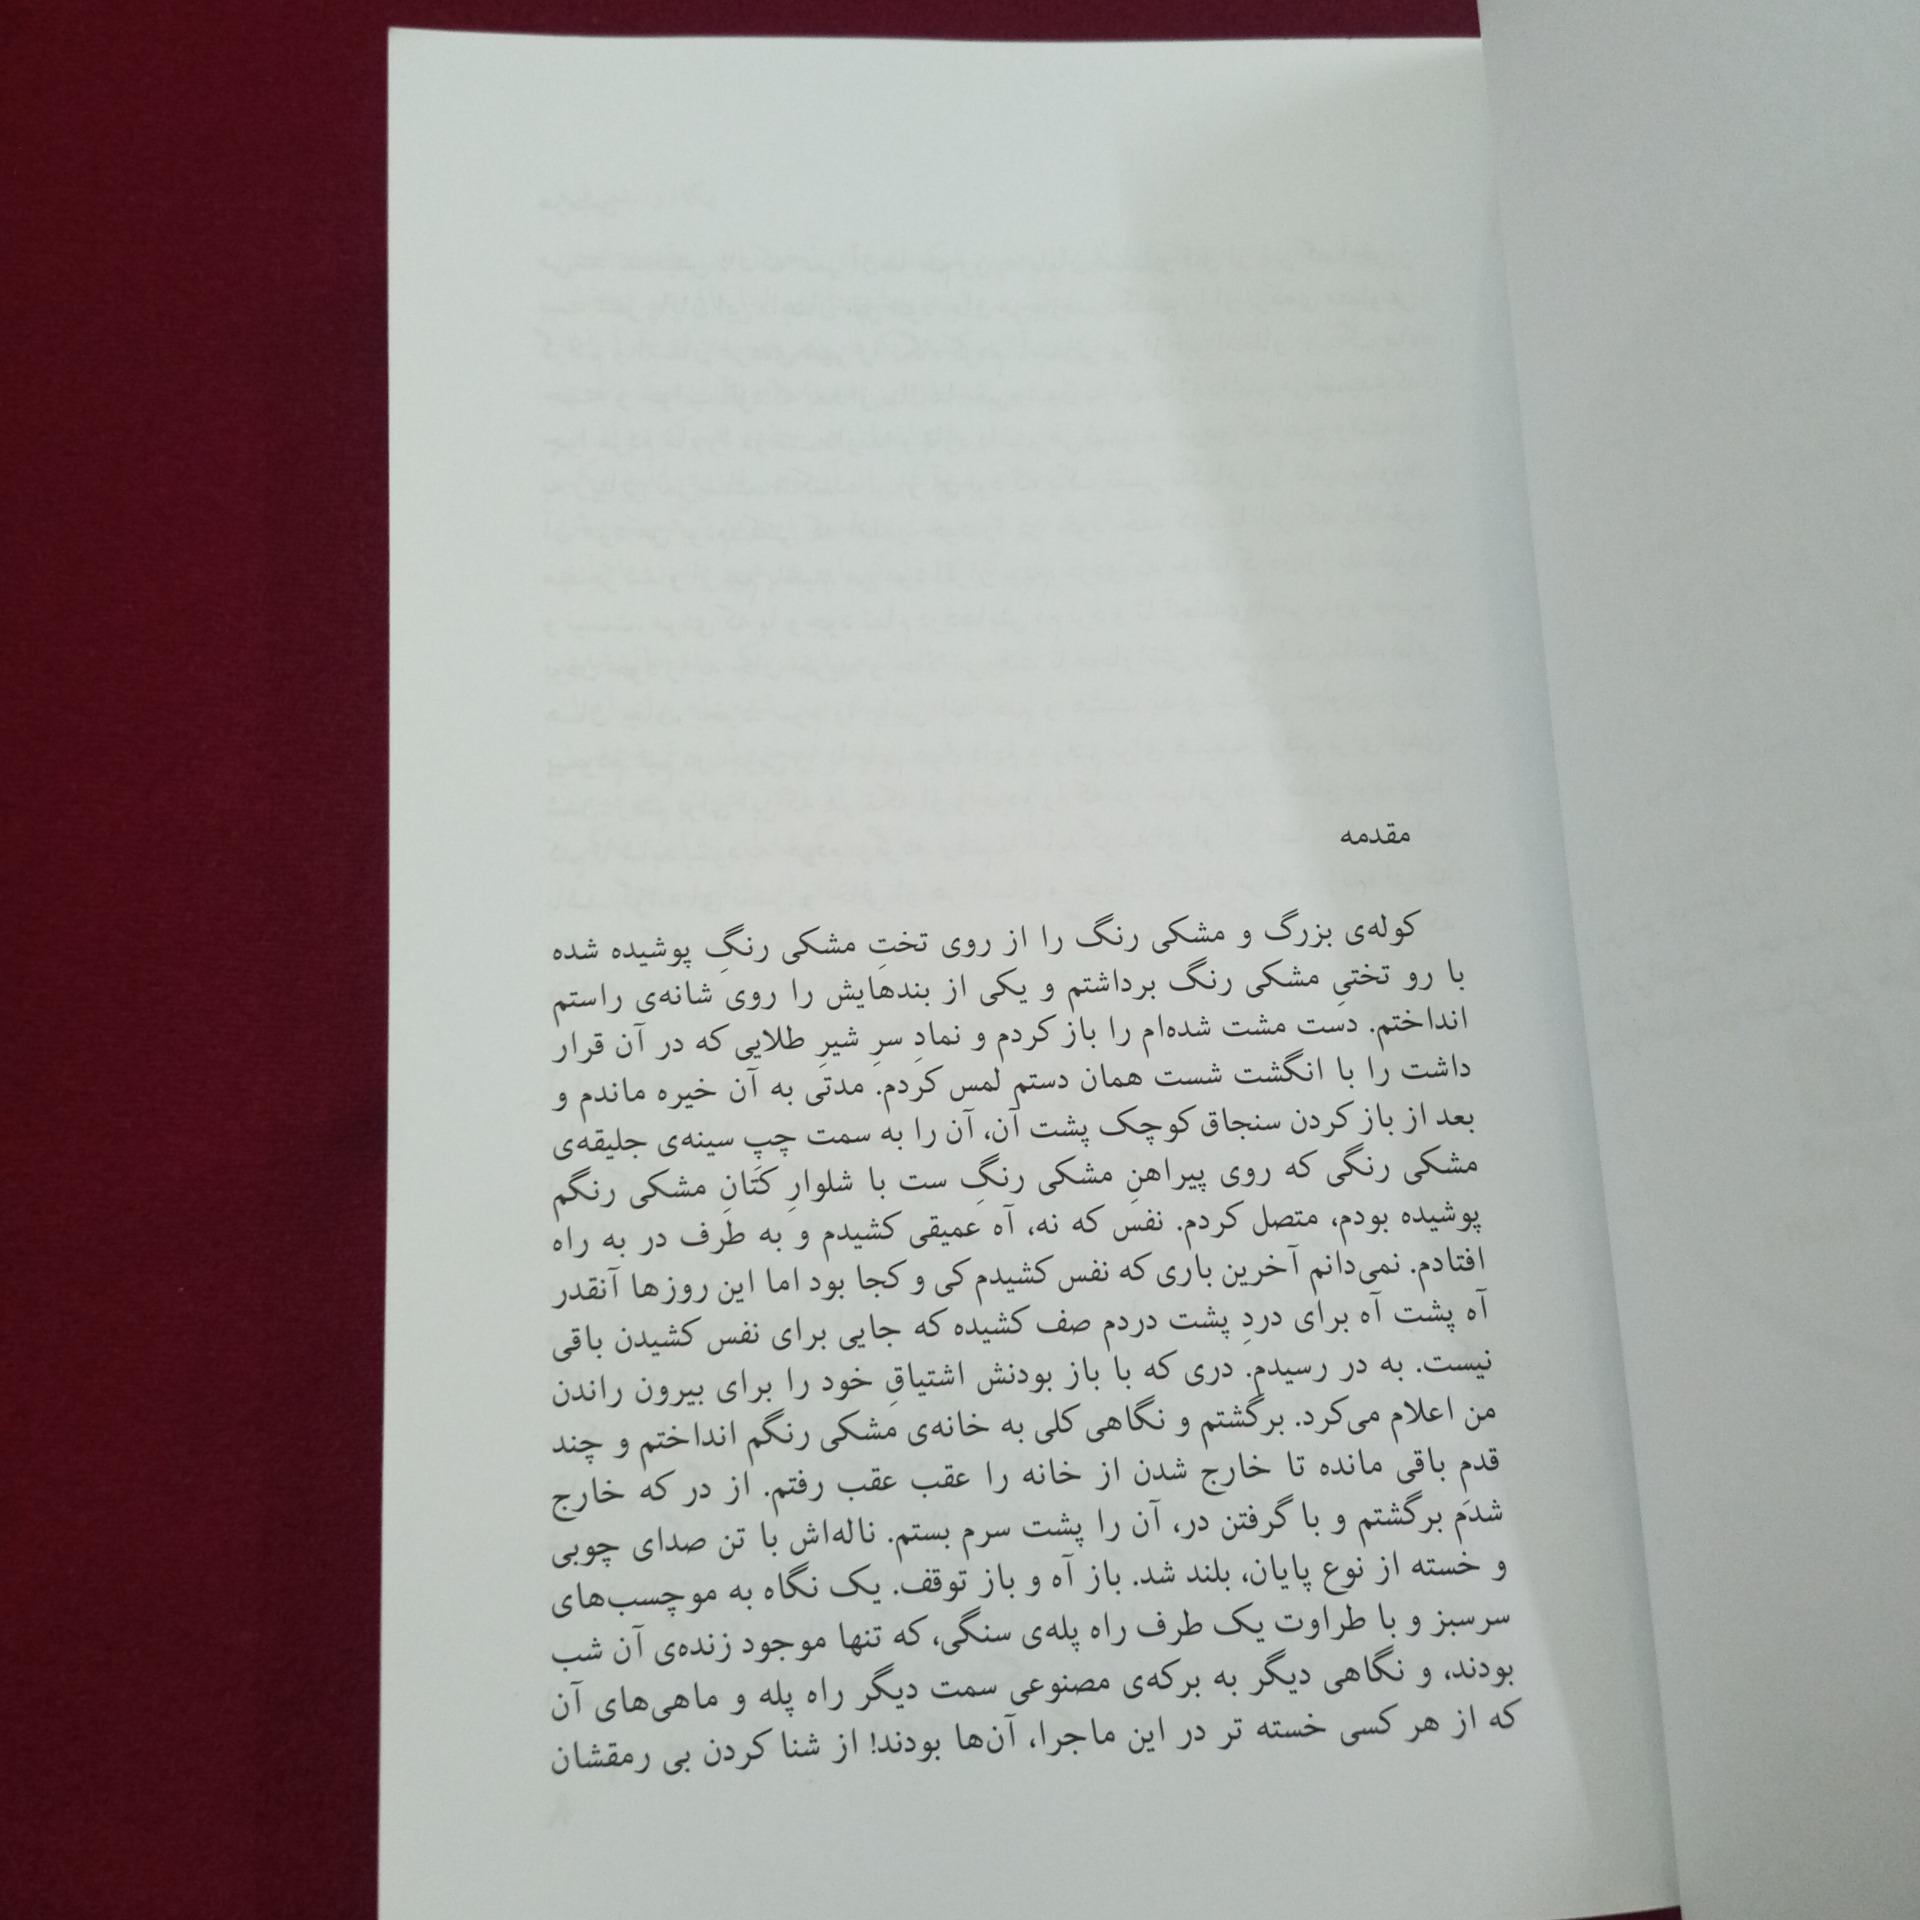 مقدمه
کوله‌ی بزرگ و مشکی رنگ را از روی تختِ مشکی رنگِ پوشیده شده
با رو تختیِ مشکی رنگ برداشتم و یکی از بندهایش را روی شانه‌ی راستم
انداختم. دست مشت شده‌ام را باز کردم و نمادِ سرِ شیرِ طلایی که در آن قرار
داشت را با انگشت شست همان دستم لمس کردم. مدتی به آن خیره ماندم و
بعد از باز کردن سنجاق کوچک پشت آن، آن را به سمت چپِ سینه‌ی جلیقه‌ی
مشکی رنگی که روی پیراهنِ مشکی رنگِ ست با شلوارِ کتانِ مشکی رنگم
پوشیده بودم، متصل کردم. نفس که نه، آه عمیقی کشیدم و به طرف در به راه
افتادم. نمی‌دانم آخرین باری که نفس کشیدم کی و کجا بود اما این روزها آنقدر
آه پشت آه برای دردِ پشت دردم صف کشیده که جایی برای نفس کشیدن باقی
نیست. به در رسیدم. دری که با باز بودنش اشتیاقِ خود را برای بیرون راندن
من اعلام می‌کرد. برگشتم و نگاهی کلی به خانه‌ی مشکی رنگم انداختم و چند
قدم باقی مانده تا خارج شدن از خانه را عقب عقب رفتم. از در که خارج
شدم برگشتم و با گرفتن در، آن را پشت سرم بستم. ناله‌اش با تن صدای چوبی
و خسته از نوع پایان، بلند شد. باز آه و باز توقف. یک نگاه به موچسب‌های
سرسبز و با طراوت یک طرف راه پله‌ی سنگی، که تنها موجود زنده‌ی آن شب
بودند، و نگاهی دیگر به برکه‌ی مصنوعی سمت دیگر راه پله و ماهی‌های آن
که از هر کسی خسته تر در این ماجرا، آن‌ها بودند! از شنا کردن بی رمقشان